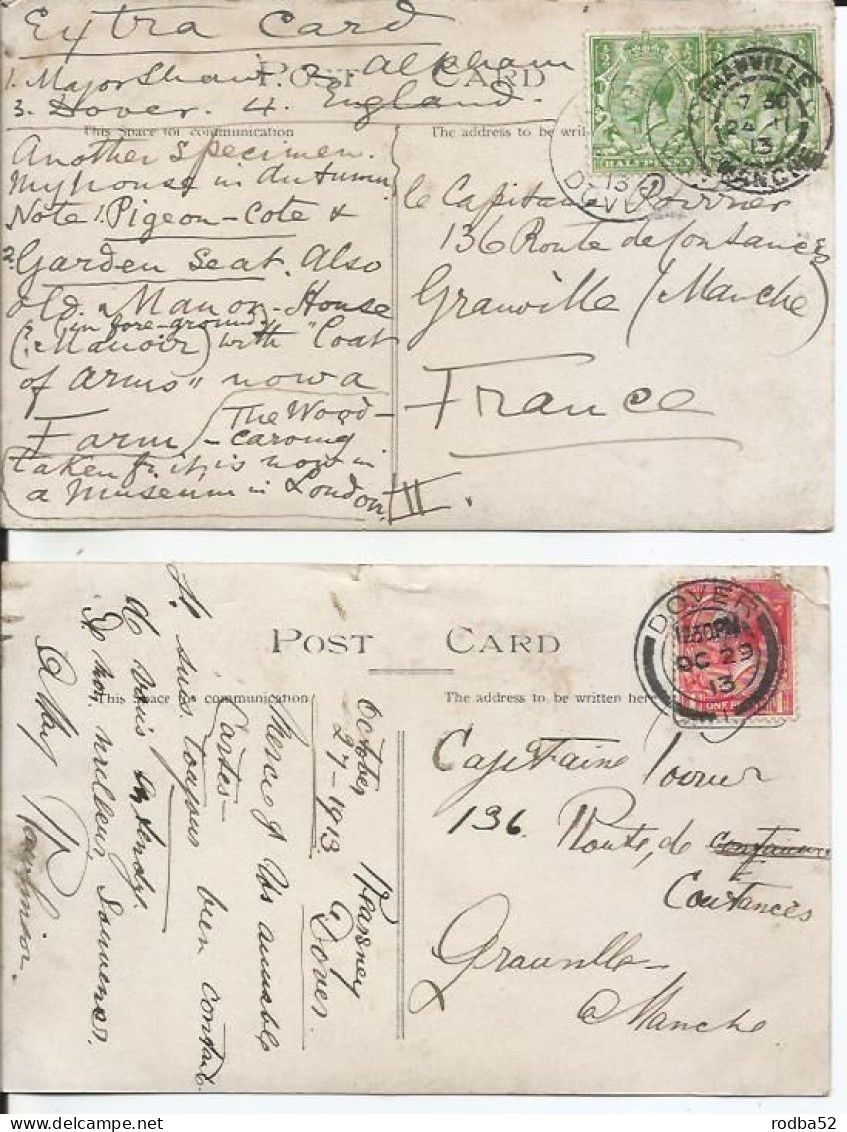 Extra Card
1. Major Shaw. 2. Alkham
3. Dover. 4. England.
POST CARD
This Space for communication
The address to be wri
HALFPENNY
GRANVILLE
7 30
24 11
13
MANCHE
13
DOV
Another Specimen.
My house in Autumn
Note 1. Pigeon-Cote &
2. Garden Seat. Also
old Manor-House
(in fore-ground)
(: Manoir) with "Coat
of Arms" now a
Farm (The Wood-
-carving
taken fr. it, is now in
a Museum in London.
III.
le Capitaine Pourrier
136 Route de Coutances
Granville (Manche)
France
POST CARD
This Space for communication
The address to be written here
DOVER
12.30PM
OC 29
13
ONE PENNY
October
27-1913
Kearsney
Dover.
Merci de Vos aimables
Cartes-
Je suis toujours bien content
de vous
De mes meilleurs Souvenirs.
Capitaine
136. Route, de
Coutances
Granville
Manche
www.delcampe.net
rodba52